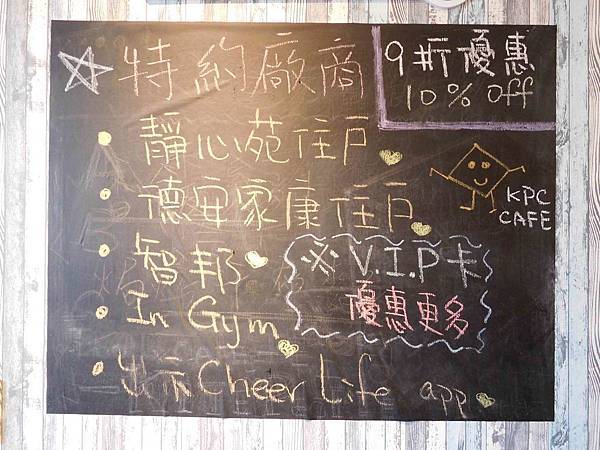 特約廠商
9折優惠
10% off
靜心苑住戶
德安家康住戶
智邦
In Gym
出示Cheer Life app
※ V.I.P卡
優惠更多
KPC
CAFE